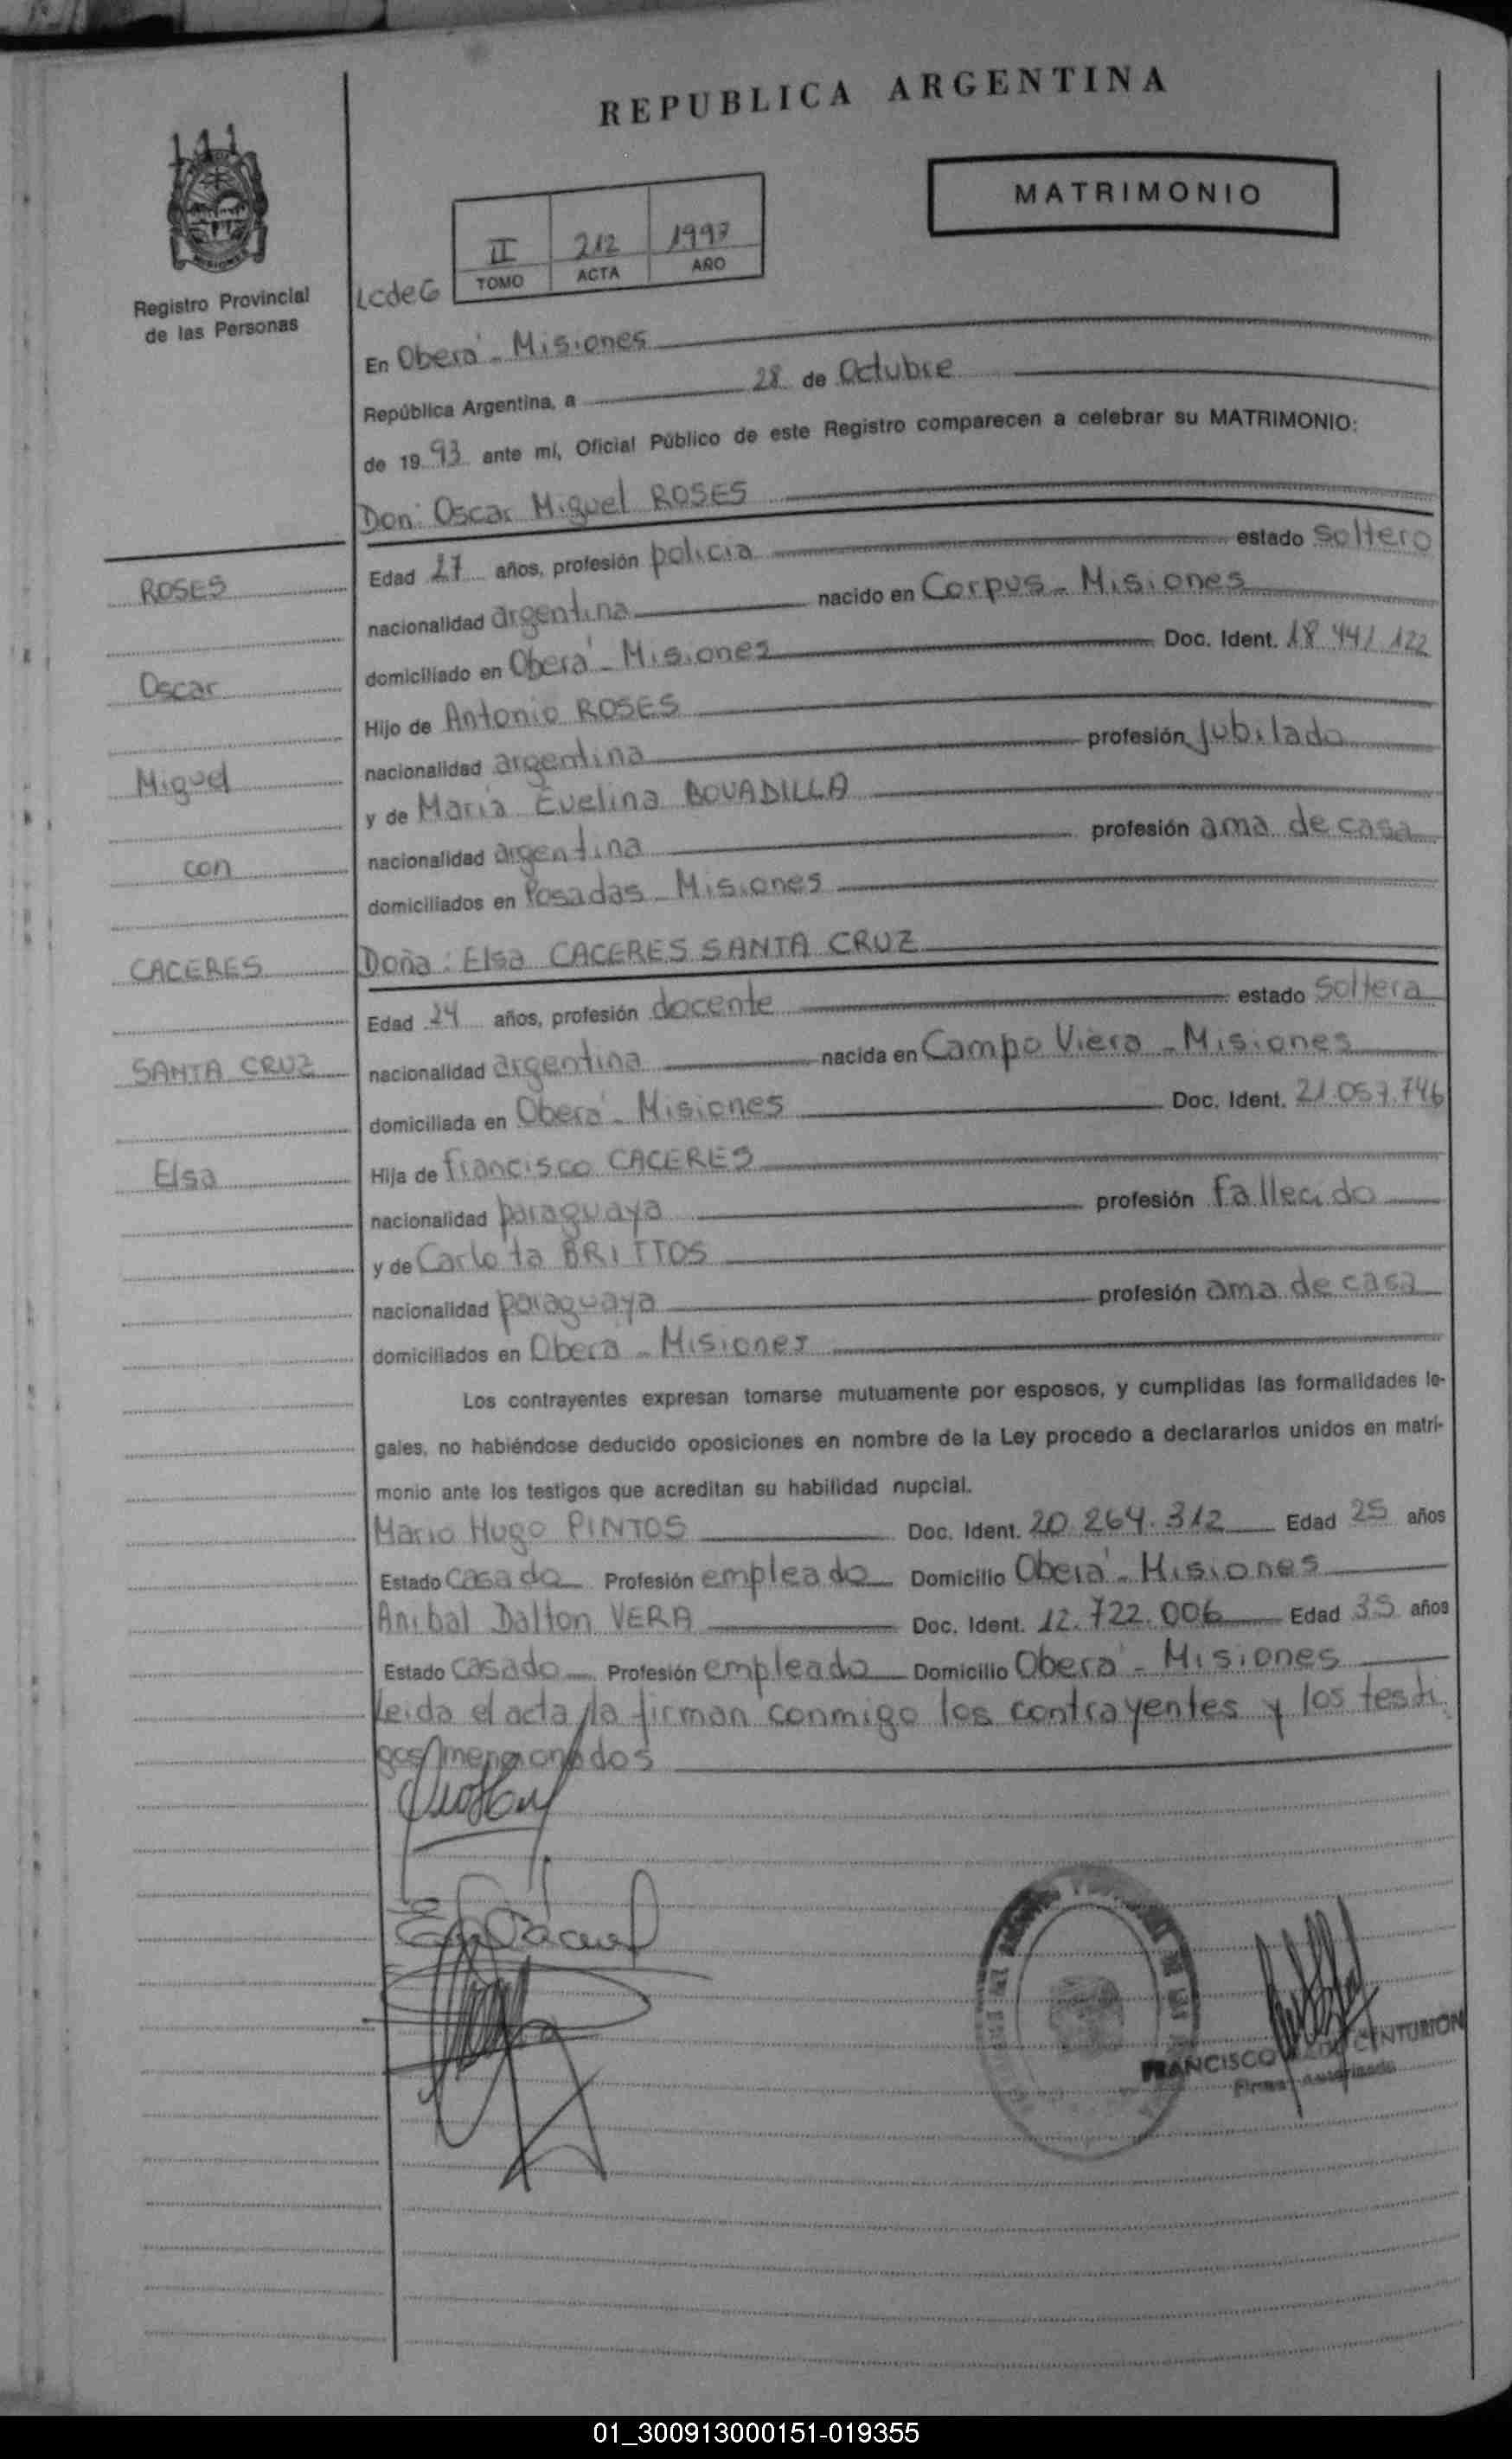 REPUBLICA ARGENTINA
111
MISIONES
Registro Provincial
de las Personas
MATRIMONIO
II 212 1993
TOMO ACTA AÑO
LcdeG
En Oberá - Misiones
República Argentina, a 28 de Octubre
de 1993 ante mí, Oficial Público de este Registro comparecen a celebrar su MATRIMONIO:
Don: Oscar Miguel ROSES
Edad 27 años, profesión policia estado Soltero
nacionalidad argentina nacido en Corpus - Misiones
domiciliado en Oberá - Misiones Doc. Ident. 18.441.122
Hijo de Antonio ROSES
nacionalidad argentina profesión Jubilado
y de María Evelina BOVADILLA
nacionalidad argentina profesión ama de casa
domiciliados en Posadas - Misiones
Doña: Elsa CACERES SANTA CRUZ
Edad 24 años, profesión docente estado Soltera
nacionalidad argentina nacida en Campo Viera - Misiones
domiciliada en Oberá - Misiones Doc. Ident. 21.057.746
Hija de Francisco CACERES
nacionalidad paraguaya profesión fallecido
y de Carlota BRITTOS
nacionalidad paraguaya profesión ama de casa
domiciliados en Oberá - Misiones
ROSES
Oscar
Miguel
con
CACERES
SANTA CRUZ
Elsa
Los contrayentes expresan tomarse mutuamente por esposos, y cumplidas las formalidades le-
gales, no habiéndose deducido oposiciones en nombre de la Ley procedo a declararlos unidos en matri-
monio ante los testigos que acreditan su habilidad nupcial.
Mario Hugo PINTOS Doc. Ident. 20.264.312 Edad 25 años
Estado Casado Profesión empleado Domicilio Oberá - Misiones
Anibal Dalton VERA Doc. Ident. 12.722.006 Edad 35 años
Estado Casado Profesión empleado Domicilio Oberá - Misiones
leida el acta la firman conmigo los contrayentes y los testi
gos mencionados
FRANCISCO CENTURION
Firma Autorizada
01_300913000151-019355